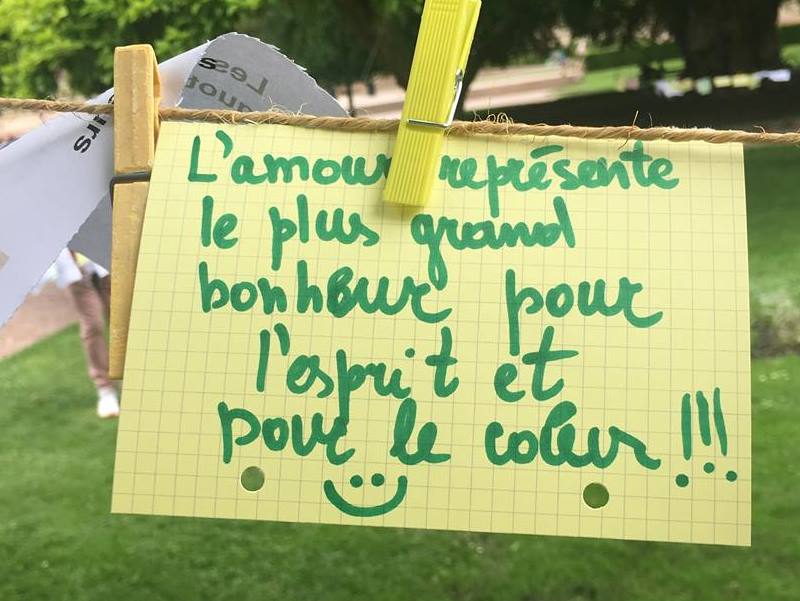 L'amour représente
le plus grand
bonheur pour
l'esprit et
pour le coleur !!!
Less